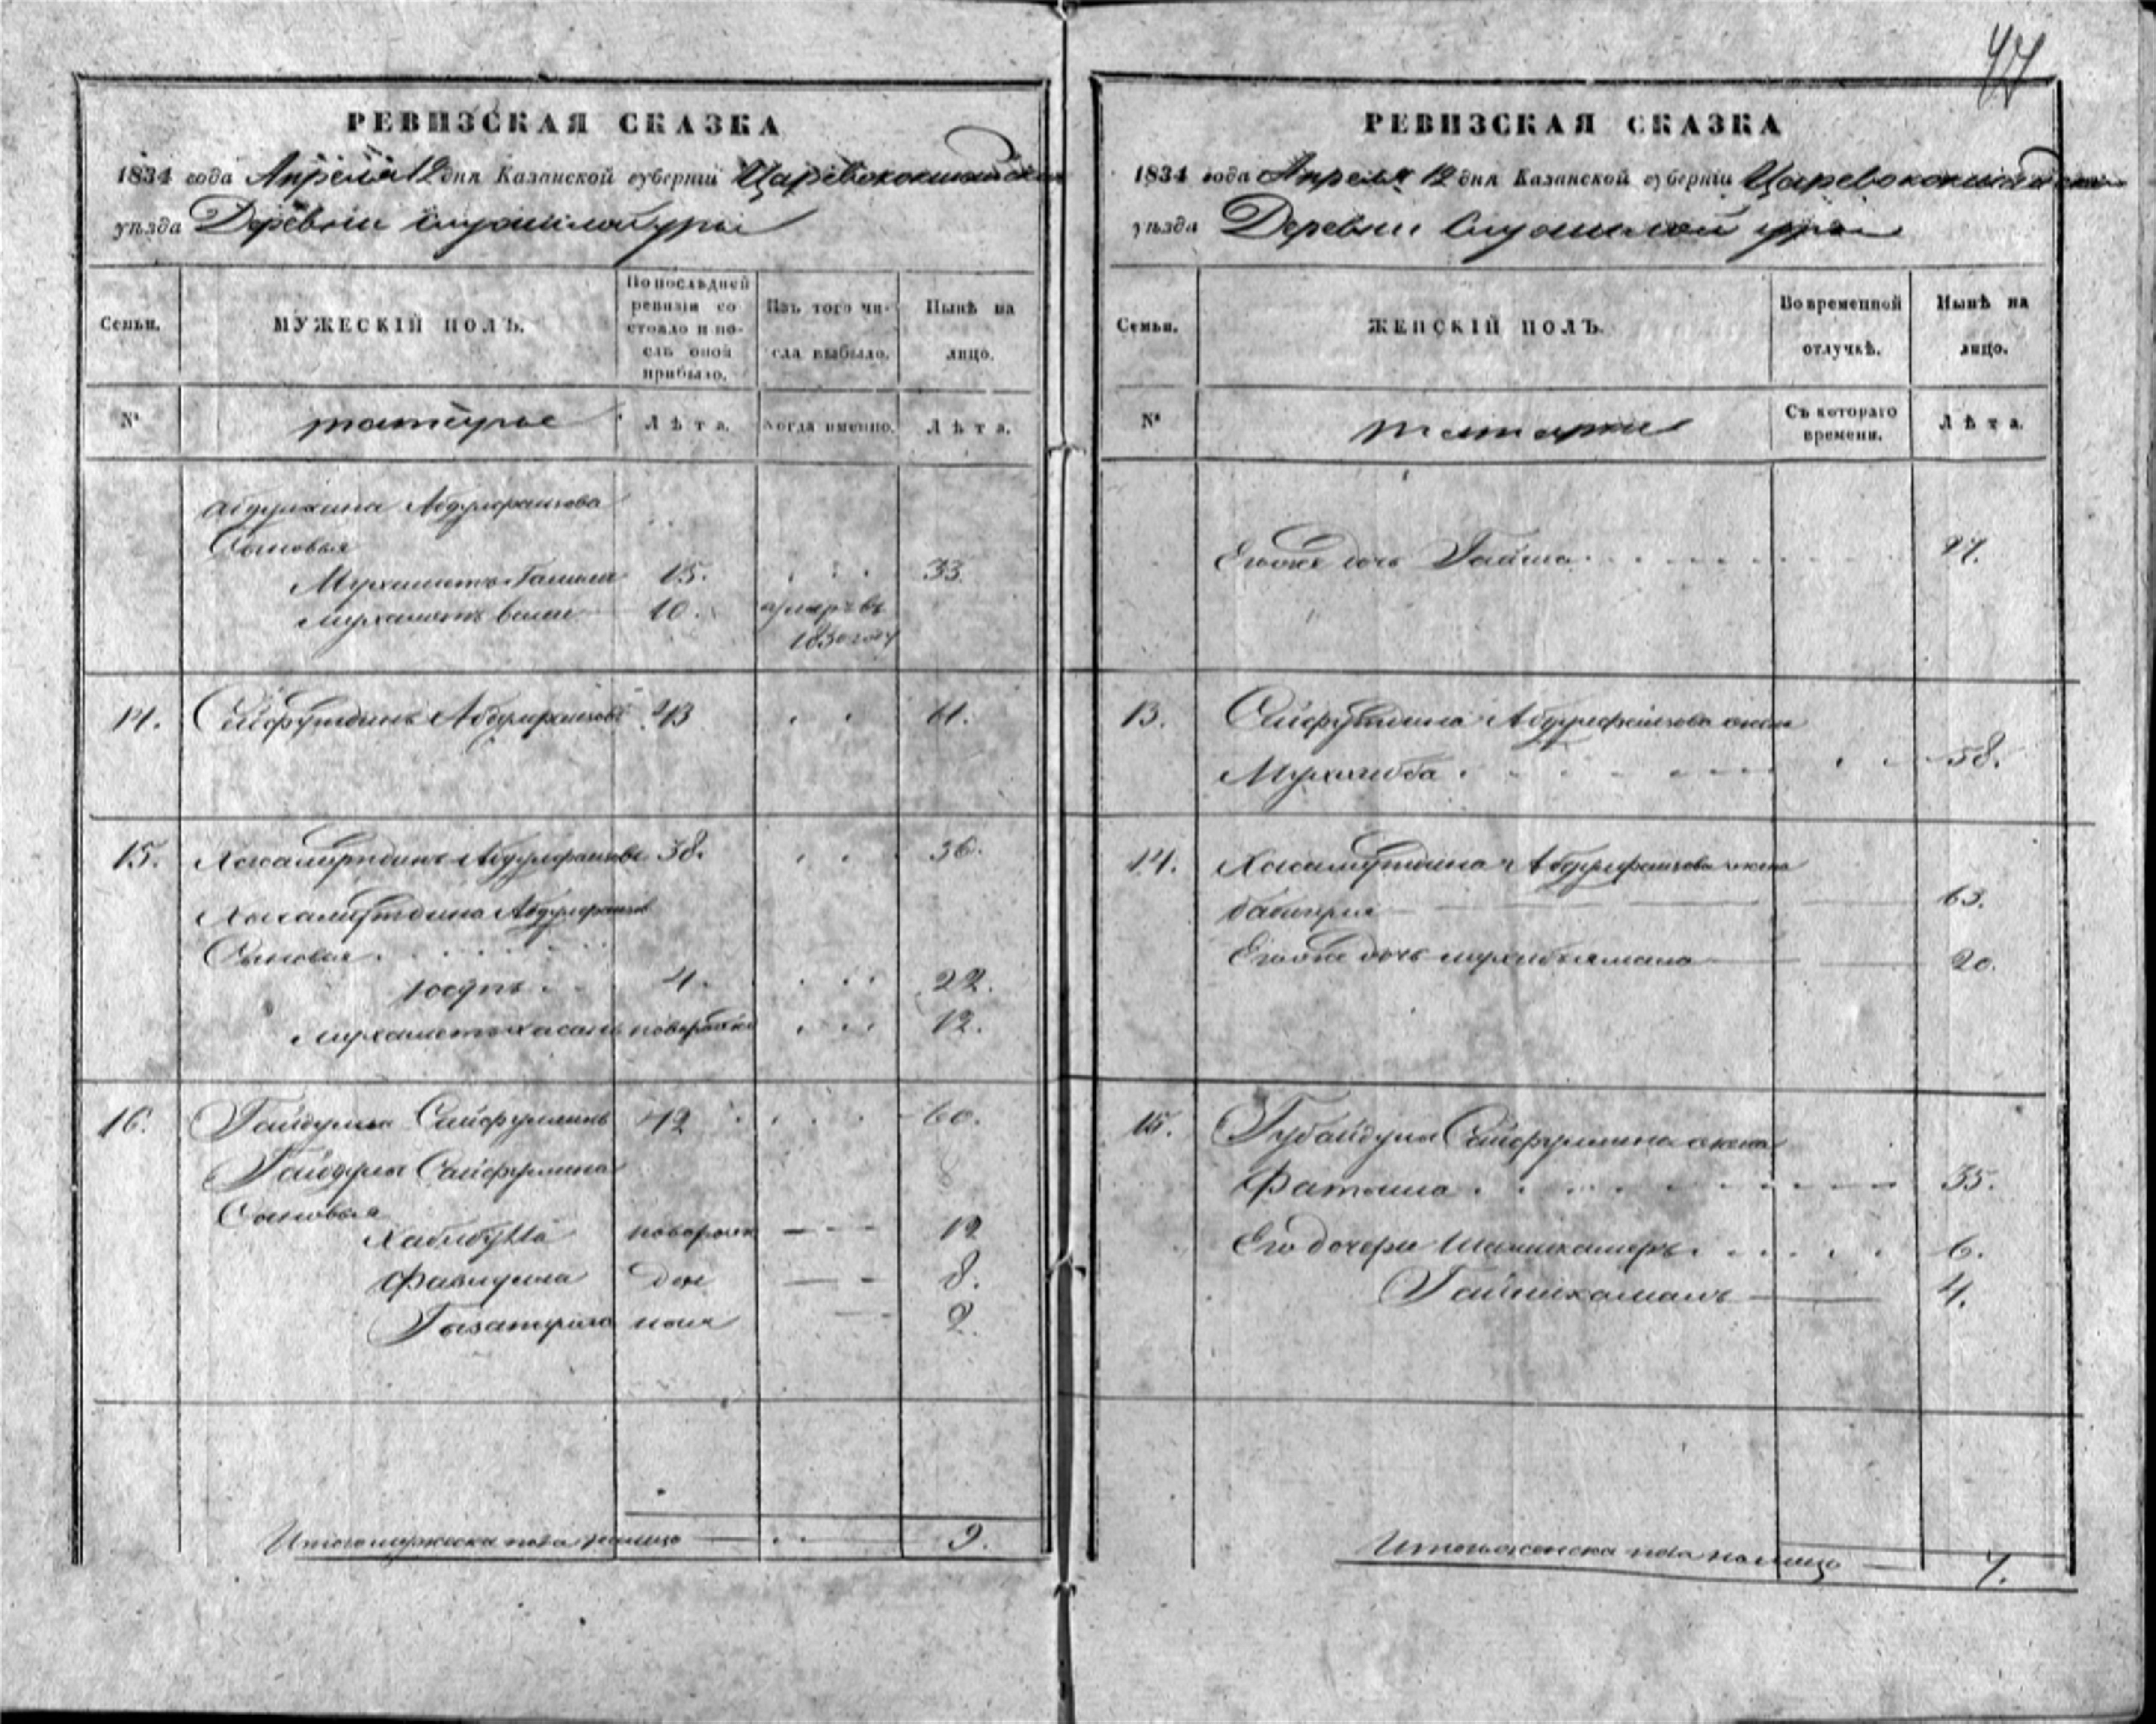 44
РЕВИЗСКАЯ СКАЗКА
1834 года Апреля 12 дня Казанской губерніи Царевококшайской
уѣзда Деревни
Семьи. МУЖЕСКІЙ ПОЛЪ. По послѣдней ревизіи состояло и послѣ оной прибыло. Изъ того числа выбыло. Нынѣ на лицо.
№ татары Лѣта. Когда именно. Лѣта.
Абдулфаизова
Сыновья
Мухаметъ Галими 15. 33.
Мухаметъ вали 10. умеръ въ
1830 году
14. Сейфутдинъ Абдулфаизовъ 43 61.
15. Хисамутдинъ Абдулфаизовъ 38. 56.
Хисамутдина Абдулфаизова
Сыновья
Юсупъ 4. 22.
Мухаметъ хасанъ новорожд 12.
16. Гайдулла Сайфуллинъ 42 60.
Гайдуллы Сайфуллина
Сыновья
Хабибулла новорож 12
Фавидулла ден 8.
Гизатулла ные 2.
Итого мужеска пола налицо 9.
РЕВИЗСКАЯ СКАЗКА
1834 года Апреля 12 дня Казанской губерніи Царевококшайской
уѣзда Деревни
Семьи. ЖЕНСКІЙ ПОЛЪ. Во временной отлучкѣ. Нынѣ на лицо.
№ татарки Съ котораго времени. Лѣта.
Его же дочь Гайша
13. Сайфутдина Абдулфаизова жена
Мухибба 58.
14. Хисамутдина Абдулфаизова жена
63.
Его же дочь 20.
15. Губайдуллы Сайфуллина жена
Фатыма 35.
Его дочери Шамсикамеръ 6.
Гайникамалъ 4.
Итого женска пола налицо 7.